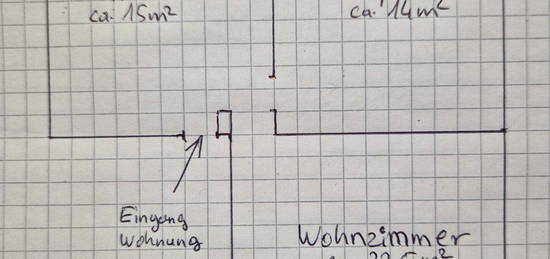 ca. 15m²
ca. 14m²
Eingang
Wohnung
Wohnzimmer